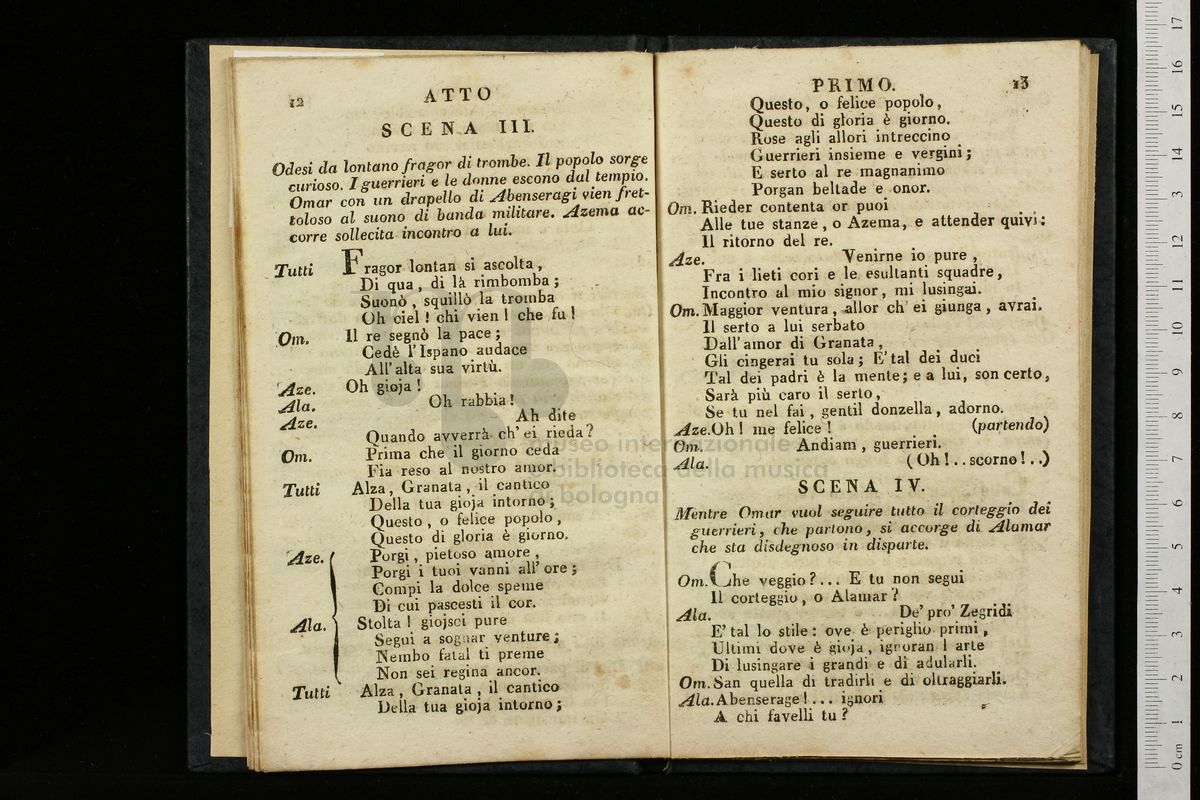 12
ATTO
SCENA III.
Odesi da lontano fragor di trombe. Il popolo sorge
curioso. I guerrieri e le donne escono dal tempio.
Omar con un drapello di Abenseragi vien fret-
toloso al suono di banda militare. Azema ac-
corre sollecita incontro a lui.
Tutti Fragor lontan si ascolta,
Di qua, di là rimbomba;
Suonò, squillò la tromba
Oh ciel! chi vien! che fu!
Om. Il re segnò la pace;
Cedè l'Ispano audace
All'alta sua virtù.
Aze. Oh gioja!
Ala. Oh rabbia!
Aze. Ah dite
Quando avverrà ch'ei rieda?
Om. Prima che il giorno ceda
Fia reso al nostro amor.
Tutti Alza, Granata, il cantico
Della tua gioja intorno;
Questo, o felice popolo,
Questo di gloria è giorno.
Aze. Porgi, pietoso amore,
Porgi i tuoi vanni all'ore;
Compi la dolce speme
Di cui pascesti il cor.
Ala. Stolta! giojsci pure
Segui a sognar venture;
Nembo fatal ti preme
Non sei regina ancor.
Tutti Alza, Granata, il cantico
Della tua gioja intorno;
PRIMO.
13
Questo, o felice popolo,
Questo di gloria è giorno.
Rose agli allori intreccino
Guerrieri insieme e vergini;
E serto al re magnanimo
Porgan beltade e onor.
Om. Rieder contenta or puoi
Alle tue stanze, o Azema, e attender quivi:
Il ritorno del re.
Aze. Venirne io pure,
Fra i lieti cori e le esultanti squadre,
Incontro al mio signor, mi lusingai.
Om. Maggior ventura, allor ch'ei giunga, avrai.
Il serto a lui serbato
Dall'amor di Granata,
Gli cingerai tu sola; E'tal dei duci
Tal dei padri è la mente; e a lui, son certo,
Sarà più caro il serto,
Se tu nel fai, gentil donzella, adorno.
Aze. Oh! me felice! (partendo)
Om. Andiam, guerrieri.
Ala. (Oh!..scorno!..)
SCENA IV.
Mentre Omar vuol seguire tutto il corteggio dei
guerrieri, che partono, si accorge di Alamar
che sta disdegnoso in disparte.
Om. Che veggio?... E tu non segui
Il corteggio, o Alamar?
Ala. De'pro' Zegridi
E'tal lo stile: ove è periglio primi,
Ultimi dove è gioja, ignoran l arte
Di lusingare i grandi e di adularli.
Om. San quella di tradirli e di oltraggiarli.
Ala. Abenserage!... ignori
A chi favelli tu?
museo internazionale
e biblioteca della musica
di bologna
0 cm 1 2 3 4 5 6 7 8 9 10 11 12 13 14 15 16 17